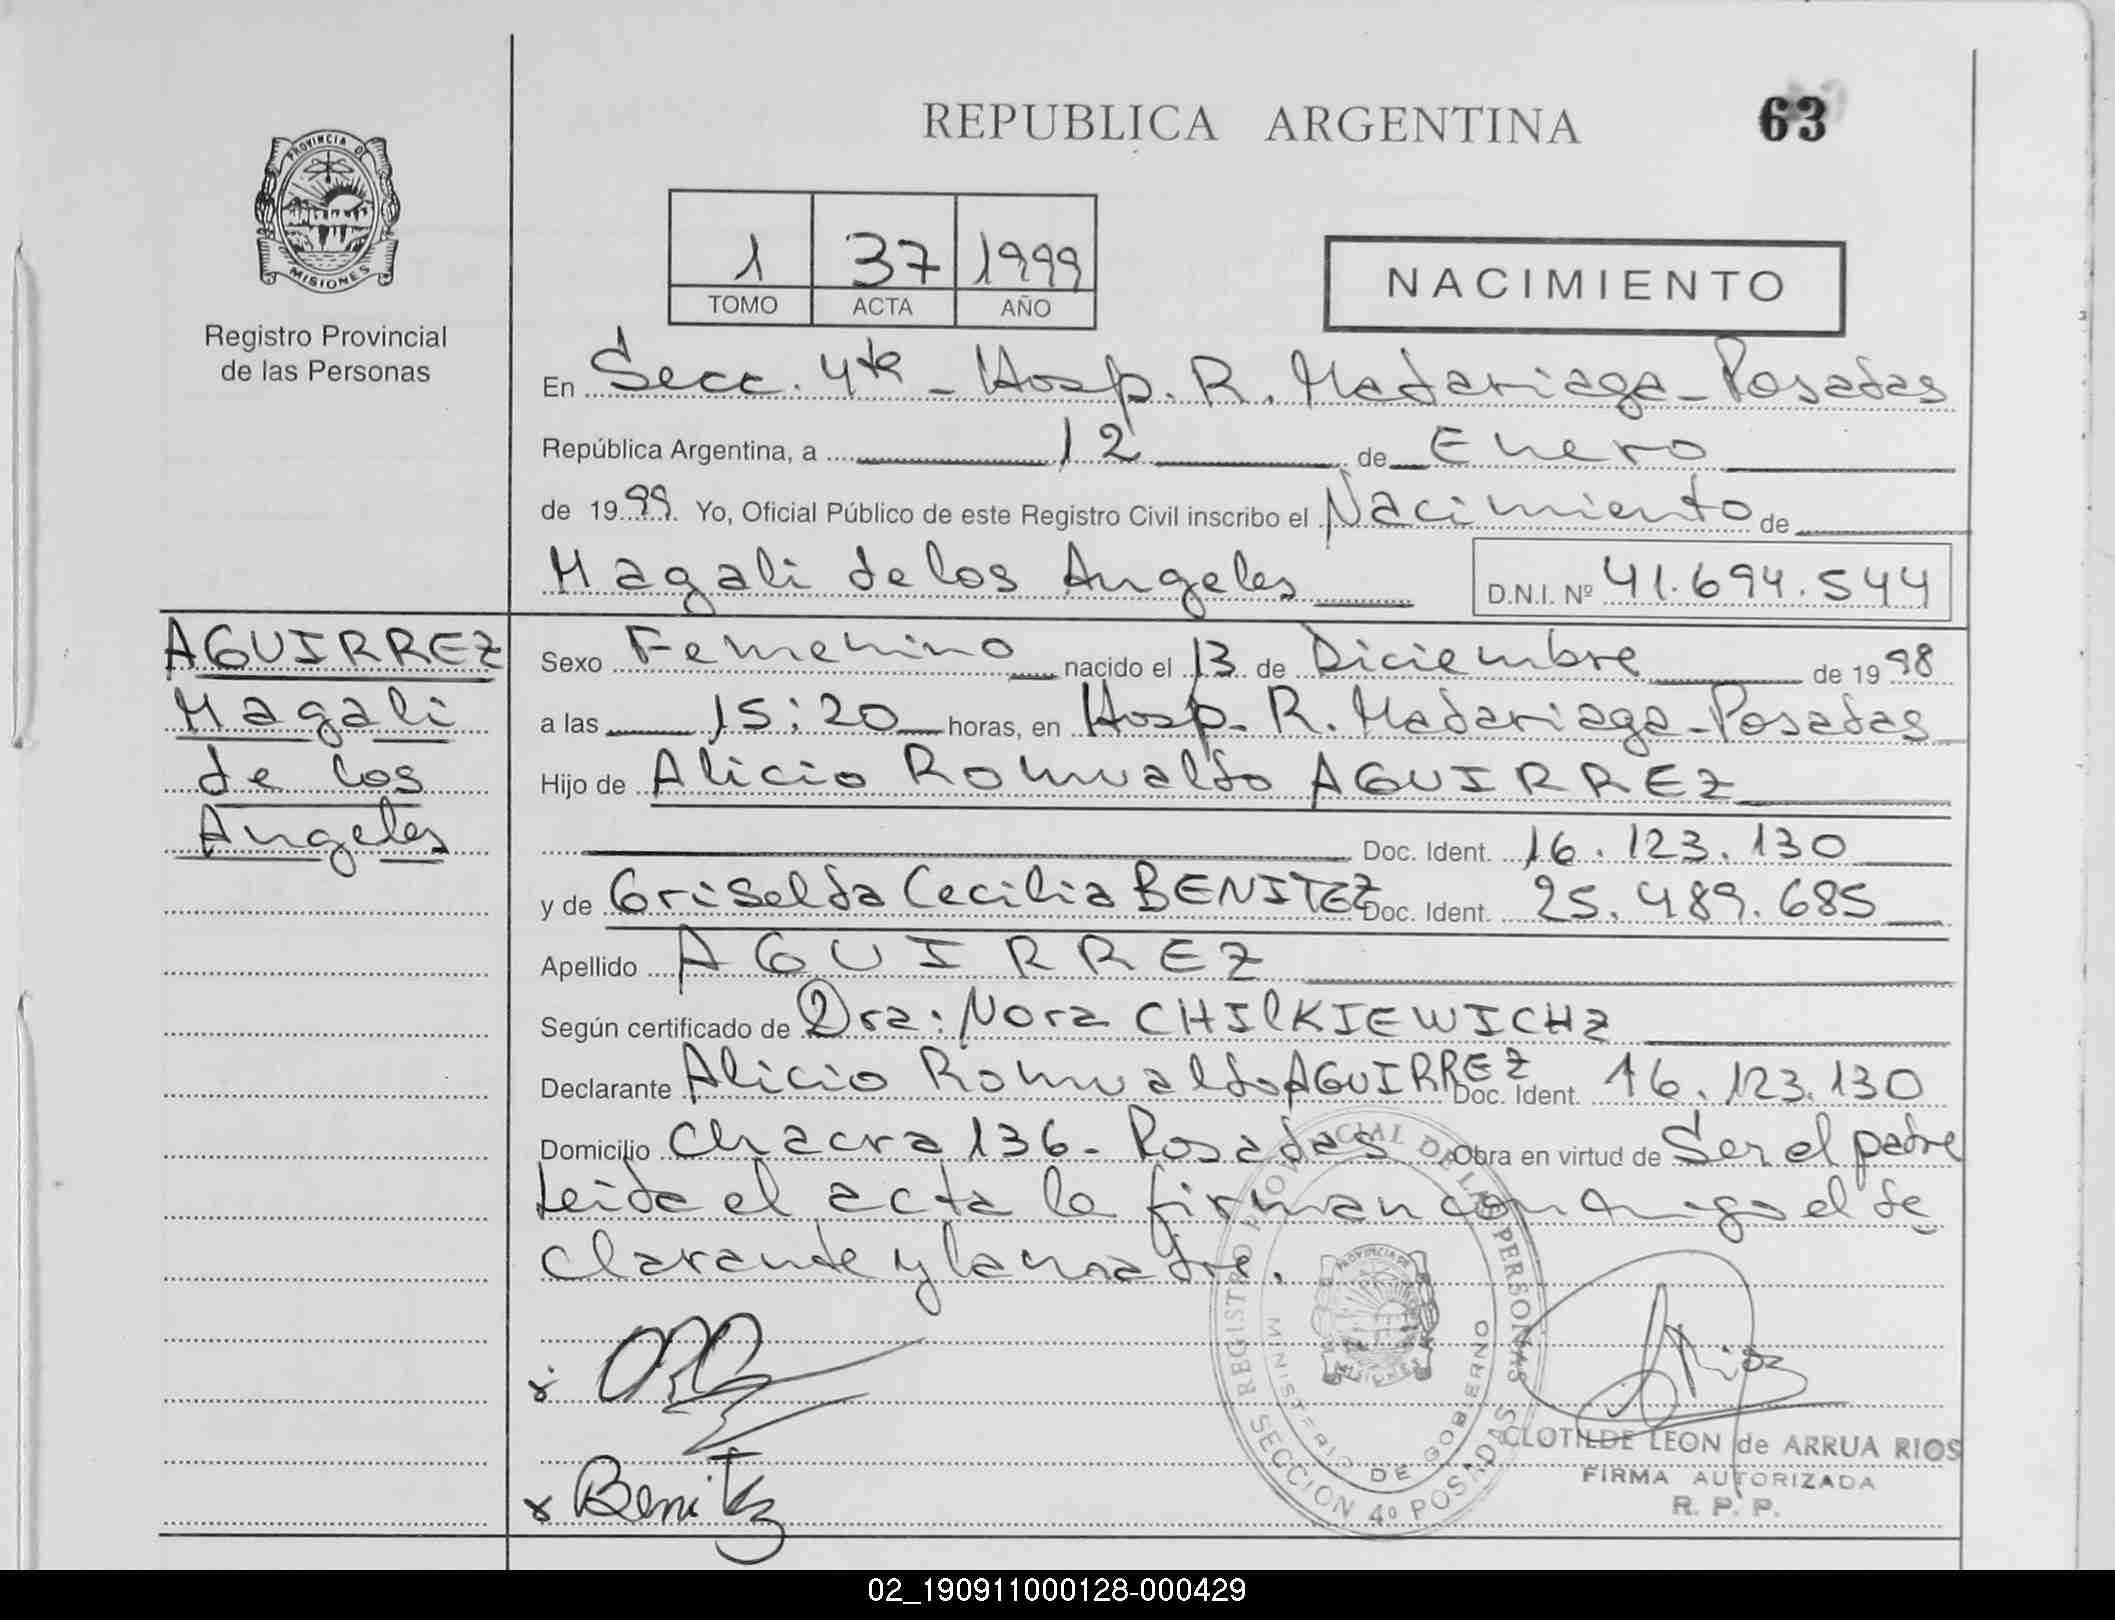 REPUBLICA ARGENTINA
63
PROVINCIA DE
MISIONES
Registro Provincial
de las Personas
1 37 1999
TOMO ACTA AÑO
NACIMIENTO
En Secc. 4ta - Hosp. R. Madariaga - Posadas
República Argentina, a 12 de Enero
de 1999. Yo, Oficial Público de este Registro Civil inscribo el Nacimiento de
Magali de los Angeles D.N.I. Nº 41.694.544
AGUIRREZ
Magali
de los
Angeles
Sexo Femenino nacido el 13 de Diciembre de 1998
a las 15:20 horas, en Hosp. R. Madariaga - Posadas
Hijo de Alicio Romualdo AGUIRREZ
Doc. Ident. 16.123.130
y de Griselda Cecilia BENITEZ Doc. Ident. 25.489.685
Apellido AGUIRREZ
Según certificado de Dra: Nora CHILKIEWICHZ
Declarante Alicio Romualdo AGUIRREZ Doc. Ident. 16.123.130
Domicilio Chacra 136 - Posadas Obra en virtud de Ser el padre
Leida el acta la firman conmigo el de
clarante y la madre.
REGISTRO PROVINCIAL DE LAS PERSONAS
MINISTERIO DE GOBERNO
SECCION 4º POSADAS
PROVINCIA DE
MISIONES
x
x Benitez
Rios
CLOTILDE LEON de ARRUA RIOS
FIRMA AUTORIZADA
R. P. P.
02_190911000128-000429